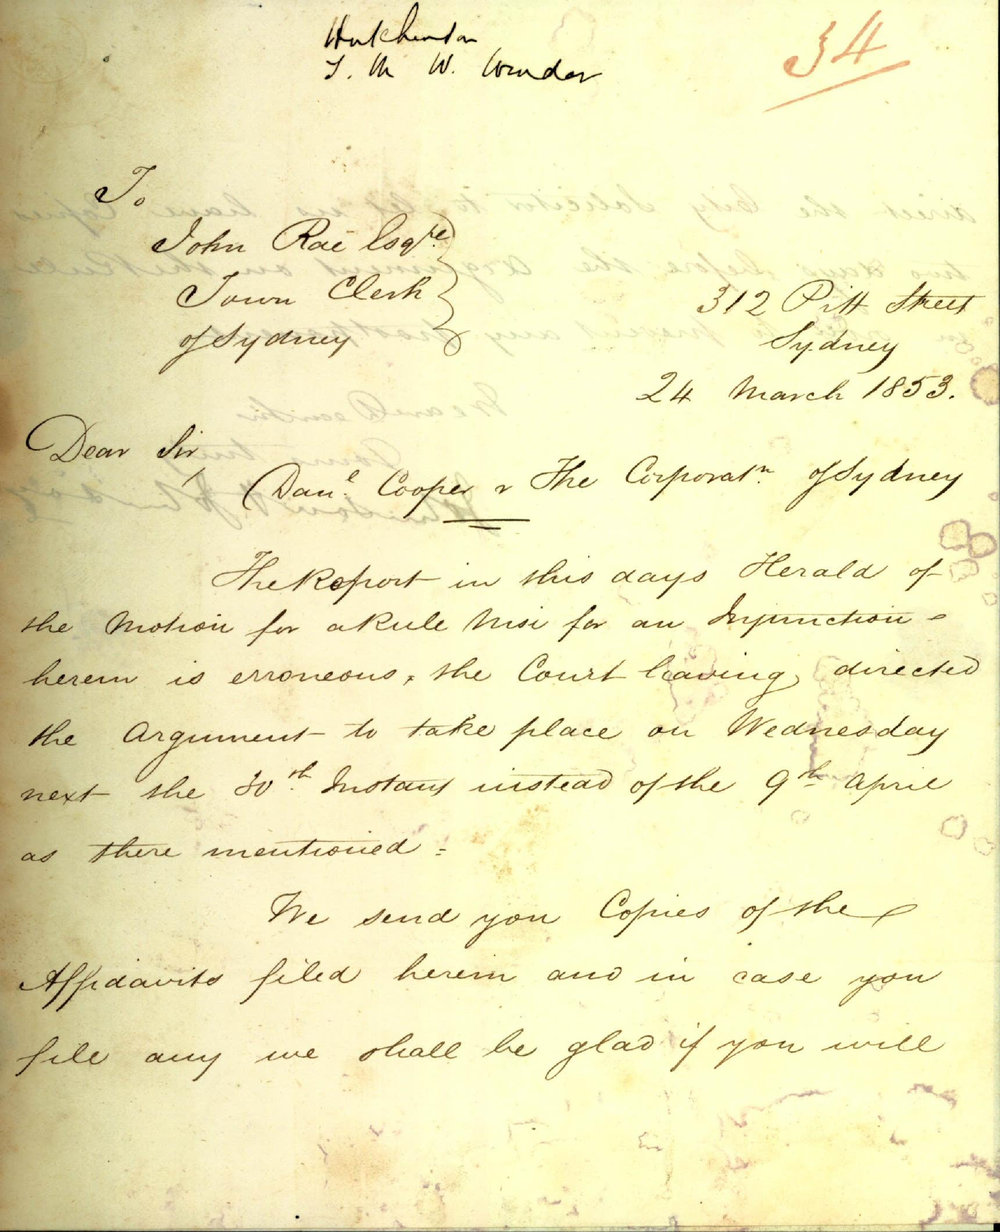 34
To
John Rae Esqre
Town Clerk
of Sydney
312 Pitt Street
Sydney
24 March 1853.
Dear Sir,
Danl. Cooper v The Corporatn. of Sydney
The Report in this days Herald of
the Motion for a Rule Nisi for an Injunction
herein is erroneous, the Court having directed
the Argument to take place on Wednesday
next the 30th Instant instead of the 9th April
as there mentioned.
We send you Copies of the
Affidavits filed herein and in case you
file any we shall be glad if you will